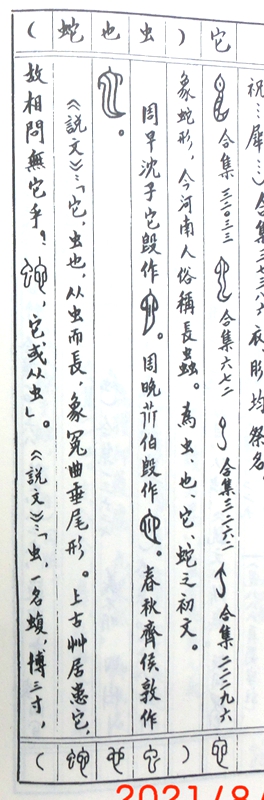 它
)
虫
也
蛇
(
祝⋯犀⋯)合集三七三八六 衣、肜均祭名。
合集三二〇三三 合集六七二 合集三二一六二 合集二二二九六
象蛇形,今河南人俗稱長蟲。為虫、也、它、蛇之初文。
周早沈子它𣪘作 。周晚 伯𣪘作 。春秋齊侯敦作
。
《說文》:「它,虫也,从虫而長,象冤曲垂尾形。上古艸居患它,
故相問無它乎? ,它或从虫」。《說文》:「虫,一名蝮,博三寸,
)
(
2021/8/